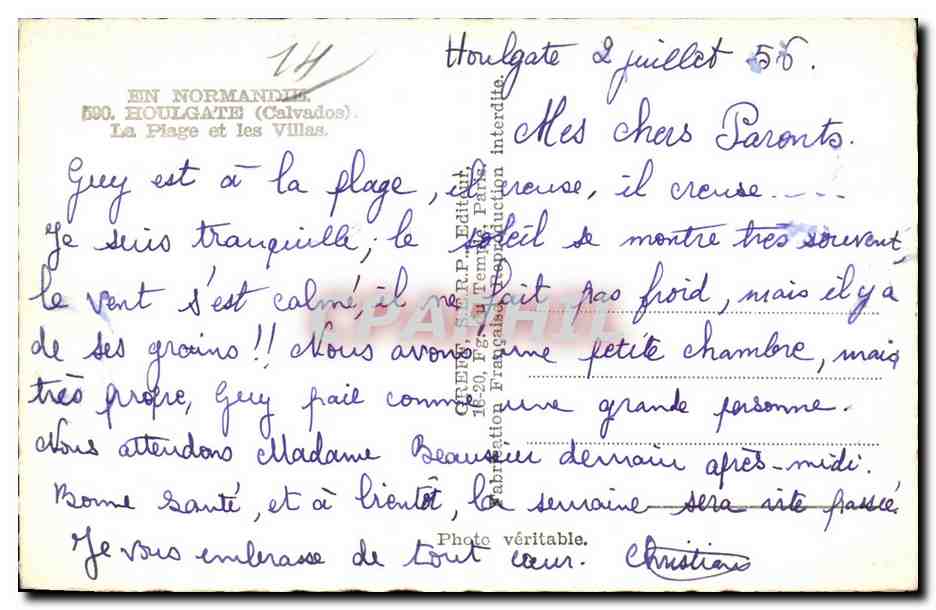 14
EN NORMANDIE.
590. HOULGATE (Calvados).
La Plage et les Villas.
Houlgate 2 juillet 56.
Mes chers Parents.
Guy est à la plage, il creuse, il creuse....
Je suis tranquille, le soleil se montre très souvent,
le vent s'est calmé, il ne fait pas froid, mais il y a
de ses grains!! Nous avons une petite chambre, mais
très propre, Guy fait comme une grande personne.
Nous attendons Madame demain après-midi.
Bonne santé, et à bientôt, la semaine sera vite passée.
Je vous embrasse de tout cœur. Christiane
GREFF, S.E.R.P., Editeur,
18-20, Fg. du Temple, Paris.
Fabrication Française. Reproduction interdite.
Photo véritable.
CPARHIL